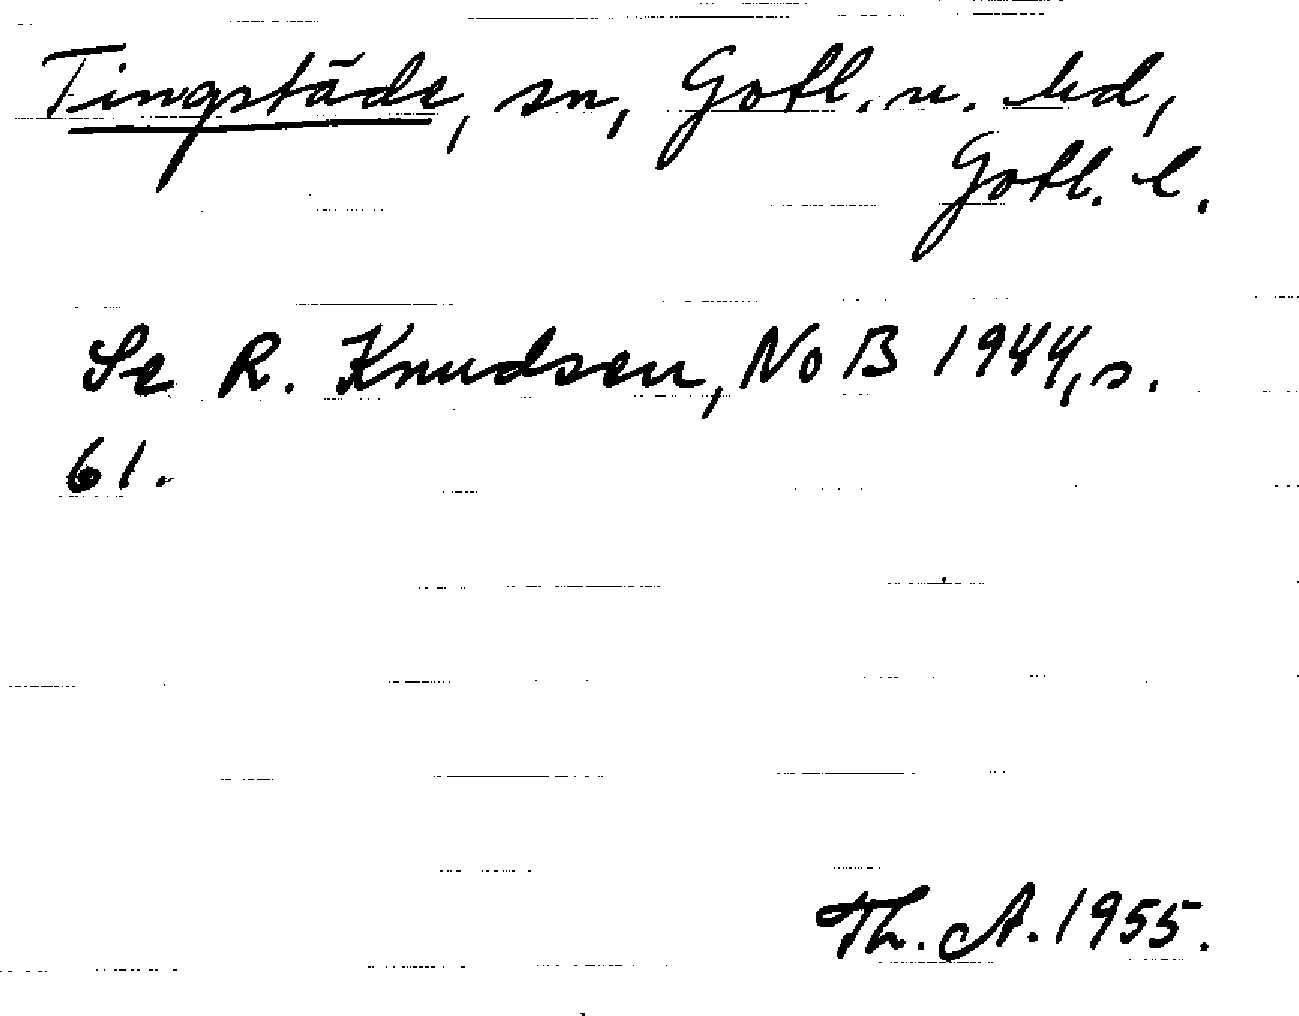 Tingstäde, sn, Gotl. n. hd,
Gotl. l.
Se R. Knudsen, NoB 1944, s.
61.
Th. A. 1955.